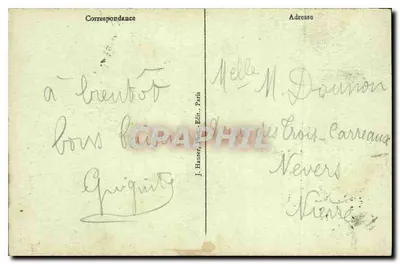 Correspondance
Adresse
à bientôt
bons baisers
Guiguite
J. Hauser, Edit., Paris
Melle M. Dounon
des Trois-Carreaux
Nevers
Nièvre
CARTE